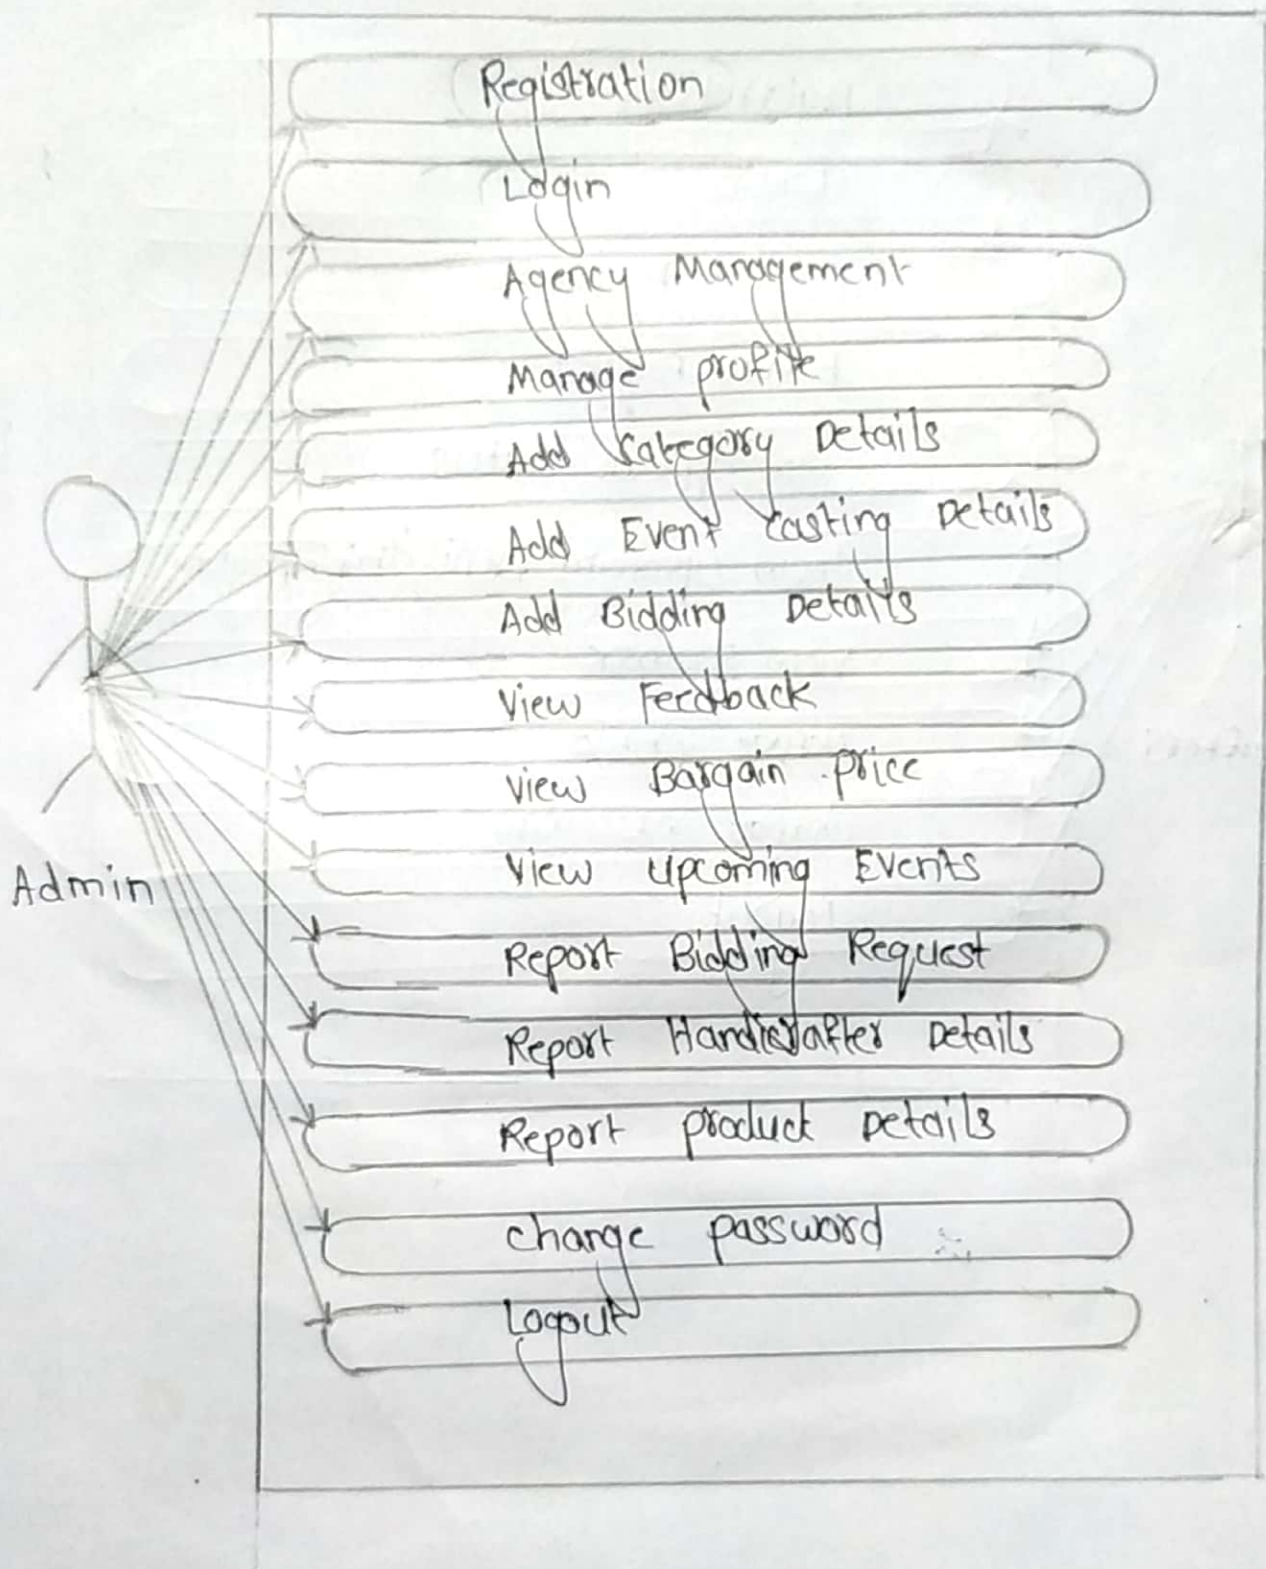 Registration
Login
Agency Management
Manage profile
Add Category Details
Add Event Casting Details
Add Bidding Details
View Feedback
View Bargain price
View upcoming Events
Admin
Report Bidding Request
Report Handicrafter Details
Report product Details
change password
Logout